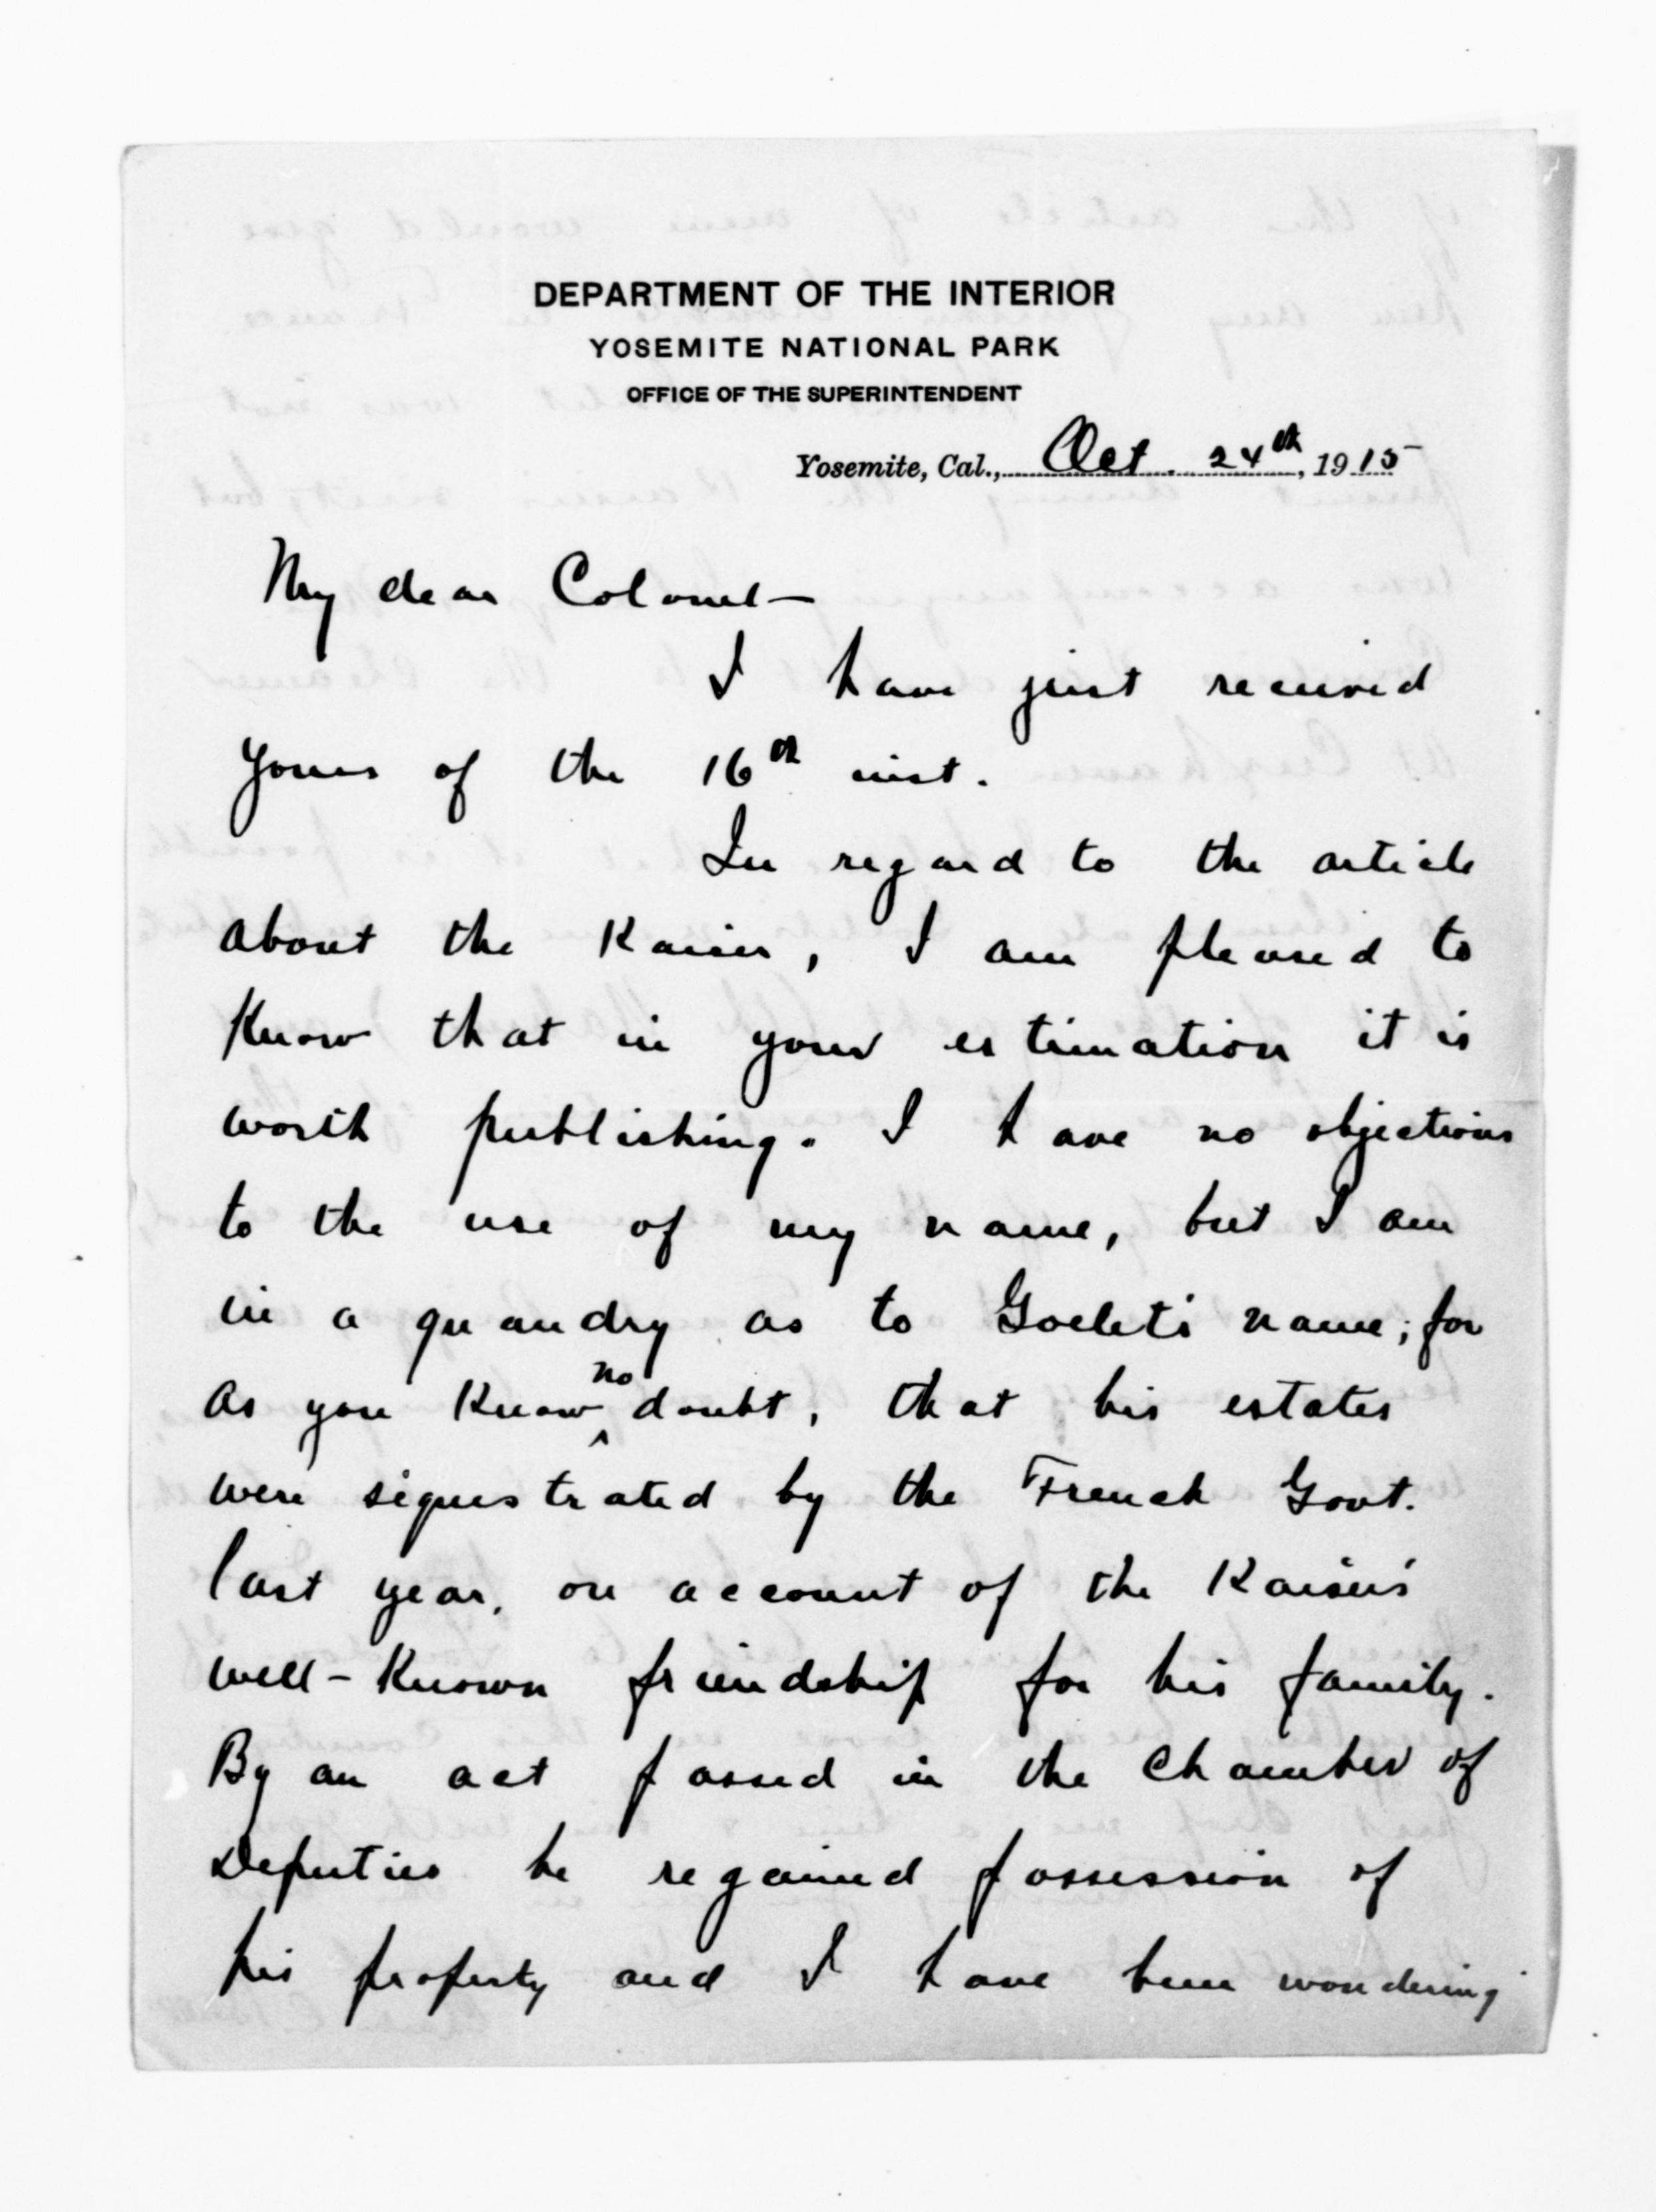 DEPARTMENT OF THE INTERIOR
YOSEMITE NATIONAL PARK
OFFICE OF THE SUPERINTENDENT
Yosemite, Cal., Oct. 24th, 1915
My dear Colonel—
I have just received
yours of the 16th inst.
In regard to the article
about the Kaiser, I am pleased to
know that in your estimation it is
worth publishing. I have no objections
to the use of my name, but I am
in a quandry as to Goelet's name; for
as you know no doubt, that his estates
were sequestrated by the French Govt.
last year, on account of the Kaiser's
well-known friendship for his family.
By an act passed in the Chamber of
Deputies he regained possession of
his property and I have been wondering